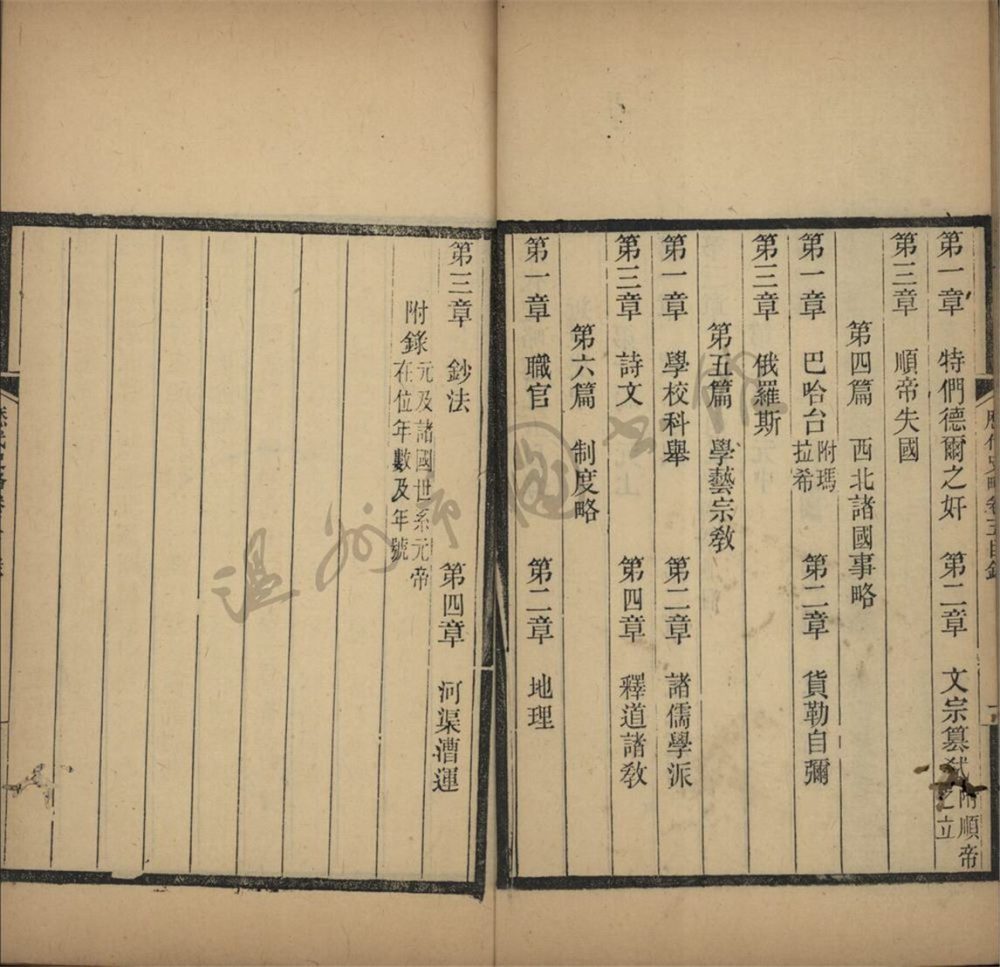 第一章　特們德爾之奸　第二章　文宗篡弒附順帝之立
第三章　順帝失國
第四篇　西北諸國事略
第一章　巴哈台附瑪拉希　第二章　貨勒自彌
第三章　俄羅斯
第五篇　學藝宗敎
第一章　學校科舉　第二章　諸儒學派
第三章　詩文　第四章　釋道諸敎
第六篇　制度略
第一章　職官　第二章　地理
第三章　鈔法　第四章　河渠漕運
附錄元及諸國世系元帝在位年數及年號